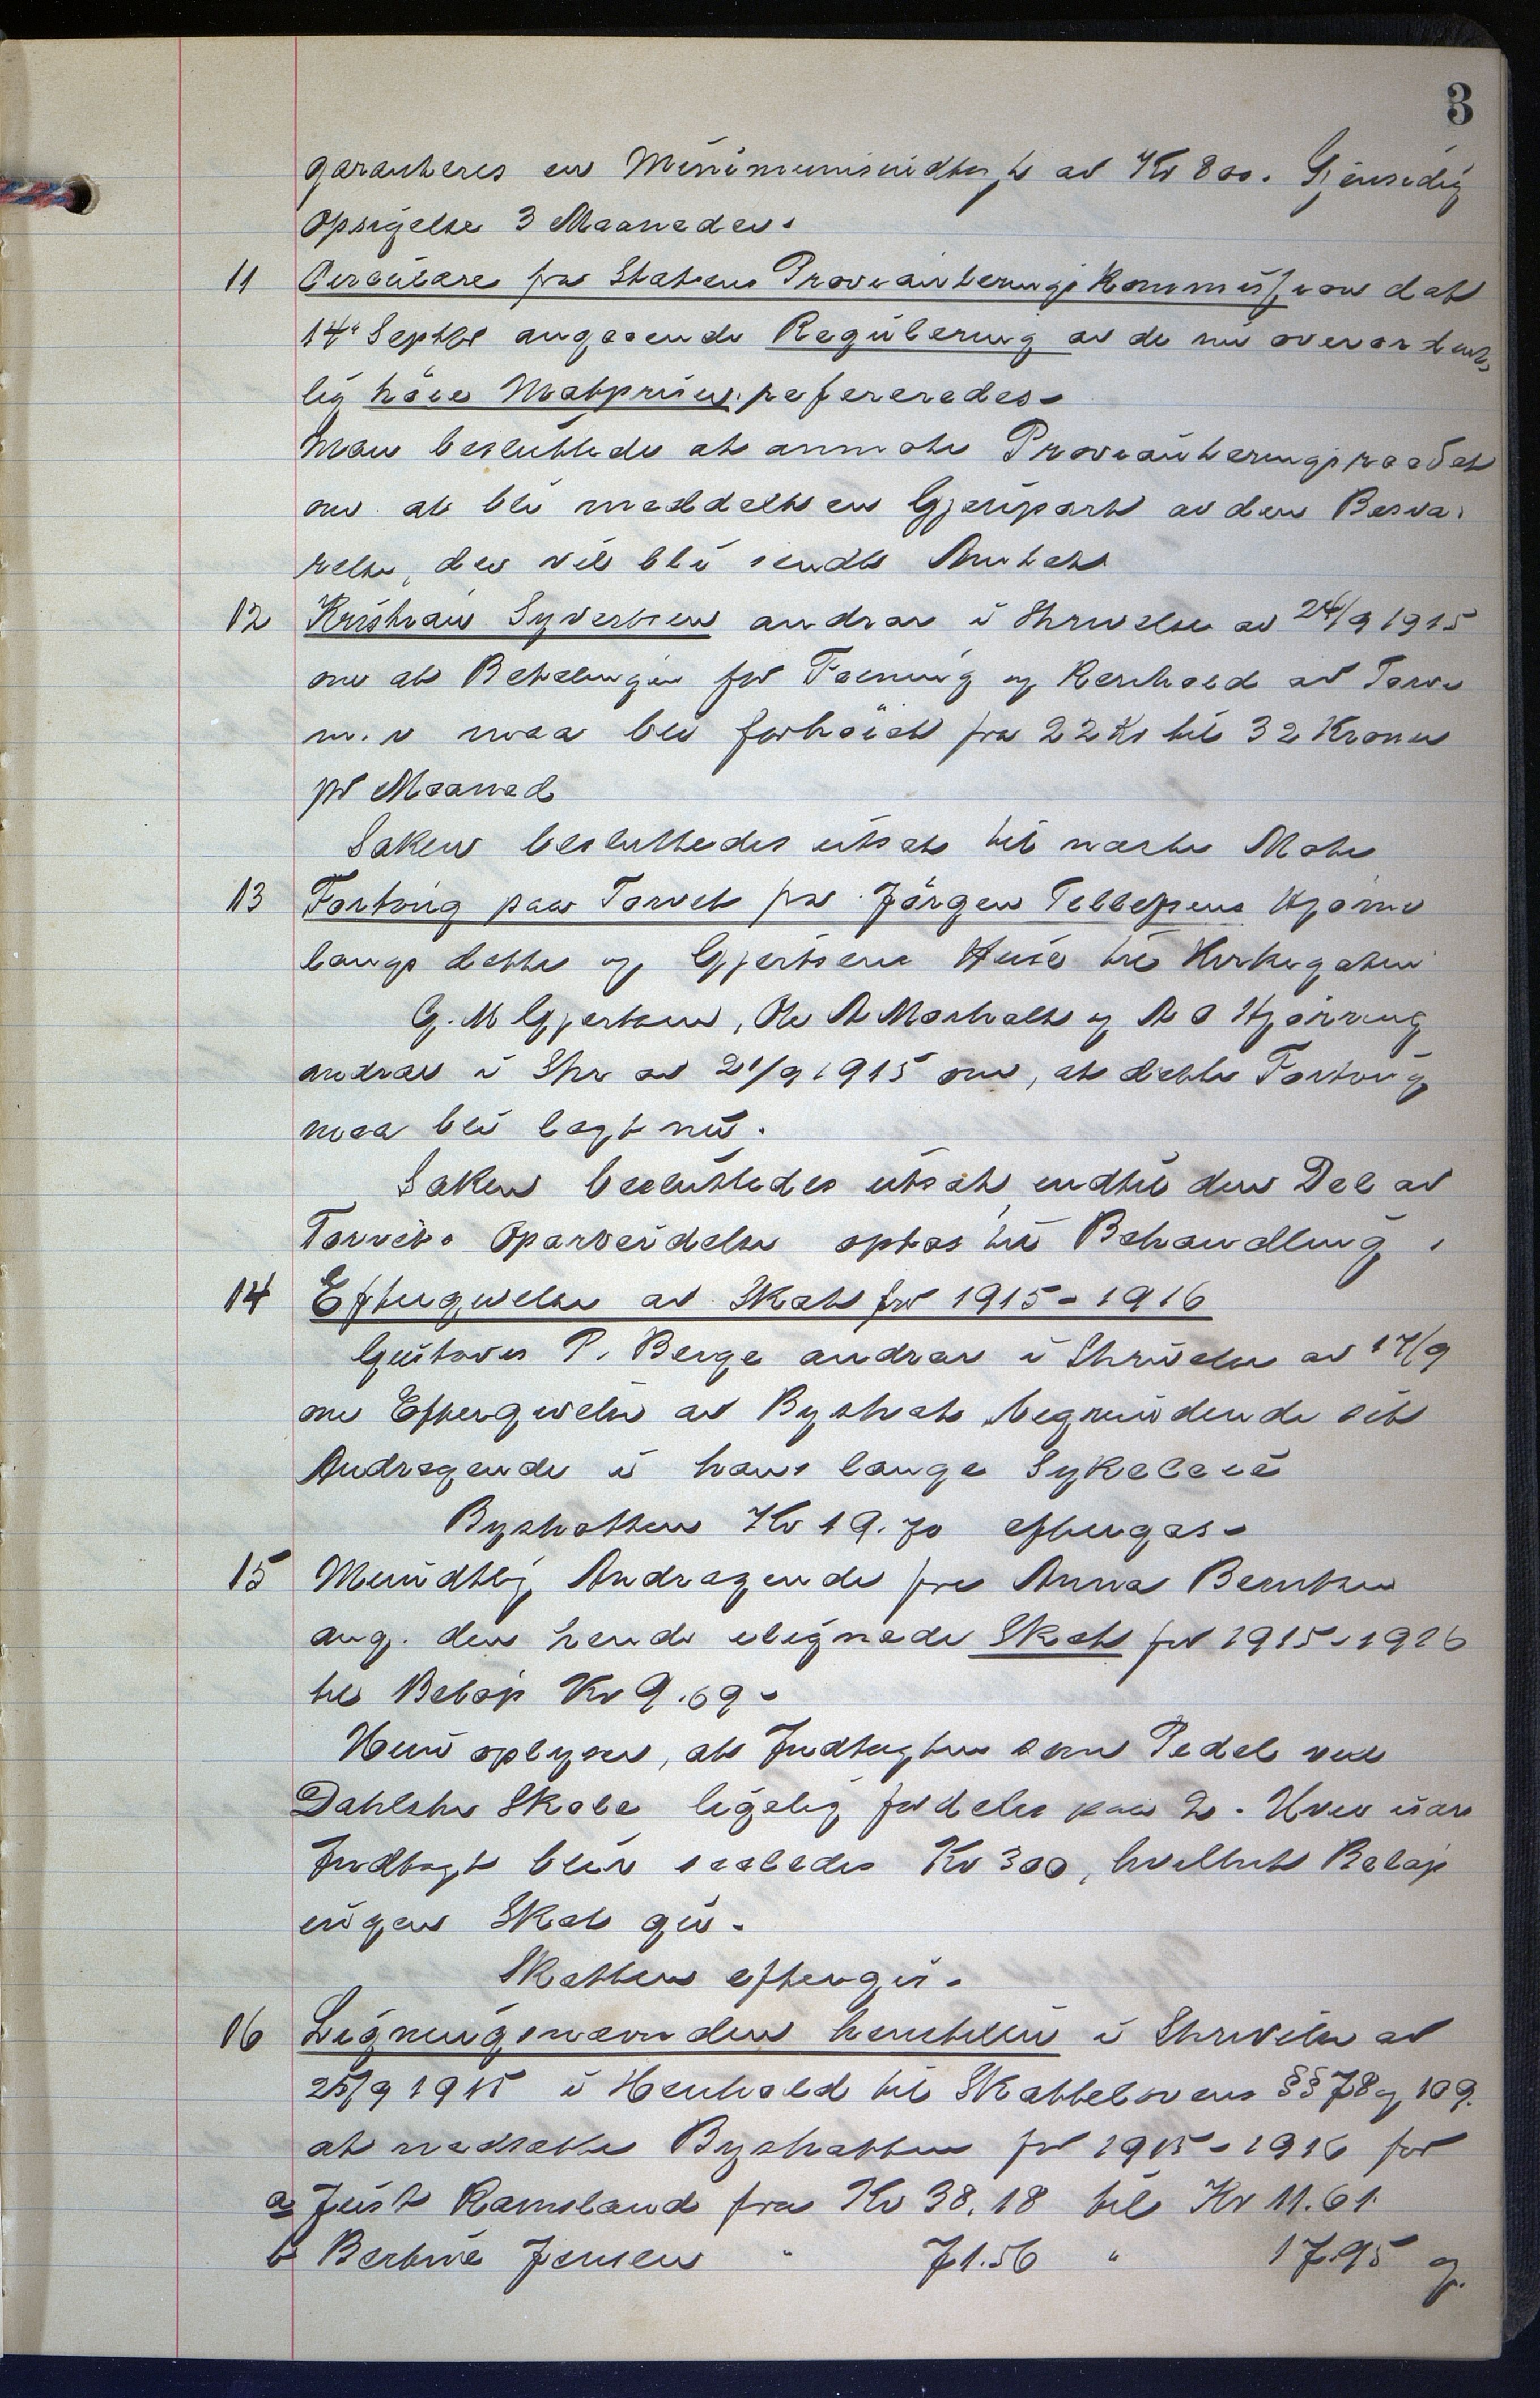 3
garanteres en Minimumsindtægt av Kr 800. Gjensidig
Opsigelse 3 Maaneder.
11 Circulære fra Statens Provianteringskommission dat
14de Septbr angaaende Regulering av de nu overordent
lig höie Matpriser refereredes.
Man besluttede at anmote Provianteringsraadet
om at bli meddelt en Gjenpart av den Besva-
relse, der vil bli sendt Amtet
12 Kristian Syvertsen andrar i Skrivelse av 24/9 1915
om at Betalingen for Feining og Renhold av Torve
m. v maa bli forhöiet fra 22 Kr til 32 Kroner
pr Maaned
Saken besluttedes utsat til næste Mote
13 Fortoug paa Torvet fra Jörgen Tellefsens Hjörne
langs dette og Gjertsens Hus til Kirkegaten
G. M Gjertsen, Ole A Mørholt og A O Hjörring
andrar i Skr av 21/9 1915 om, at dette Fortoug
maa bli lagt nu.
Saken besluttedes utsat indtil den Del av
Torvets Oparbeidelse optas til Behandling.
14 Eftergivelse av Skat for 1915-1916
Gustava P. Berge andrar i Skrivelse av 17/9
om Eftergivelse av Byskat begrundende sit
Andragende i hans lange Sykeleie
Byskatten Kr 19.70 eftergas.
15 Mundtlig Andragende fra Anna Berntsen
ang. den hende ilignede Skat for 1915-1916
til Beløp Kr 9.69.
Hun oplyser, at Indtægten som Pedel ved
Dahlske Skole ligelig fordeles paa 2. Hver især
Indtægt blir saaledes Kr 300, hvilket Beløp
ingen Skat gir.
Skatten eftergis.
16 Ligningsnævnden henstiller i Skrivelse av
25/9 1915 i Henhold til Skattelovens §§ 78 og 109.
at nedsætte Byskatten for 1915-1916 for
a Just Ramsland fra Kr 38.18 til Kr 11.61.
b Bertine Jensen " 71.56 " 17.95 og